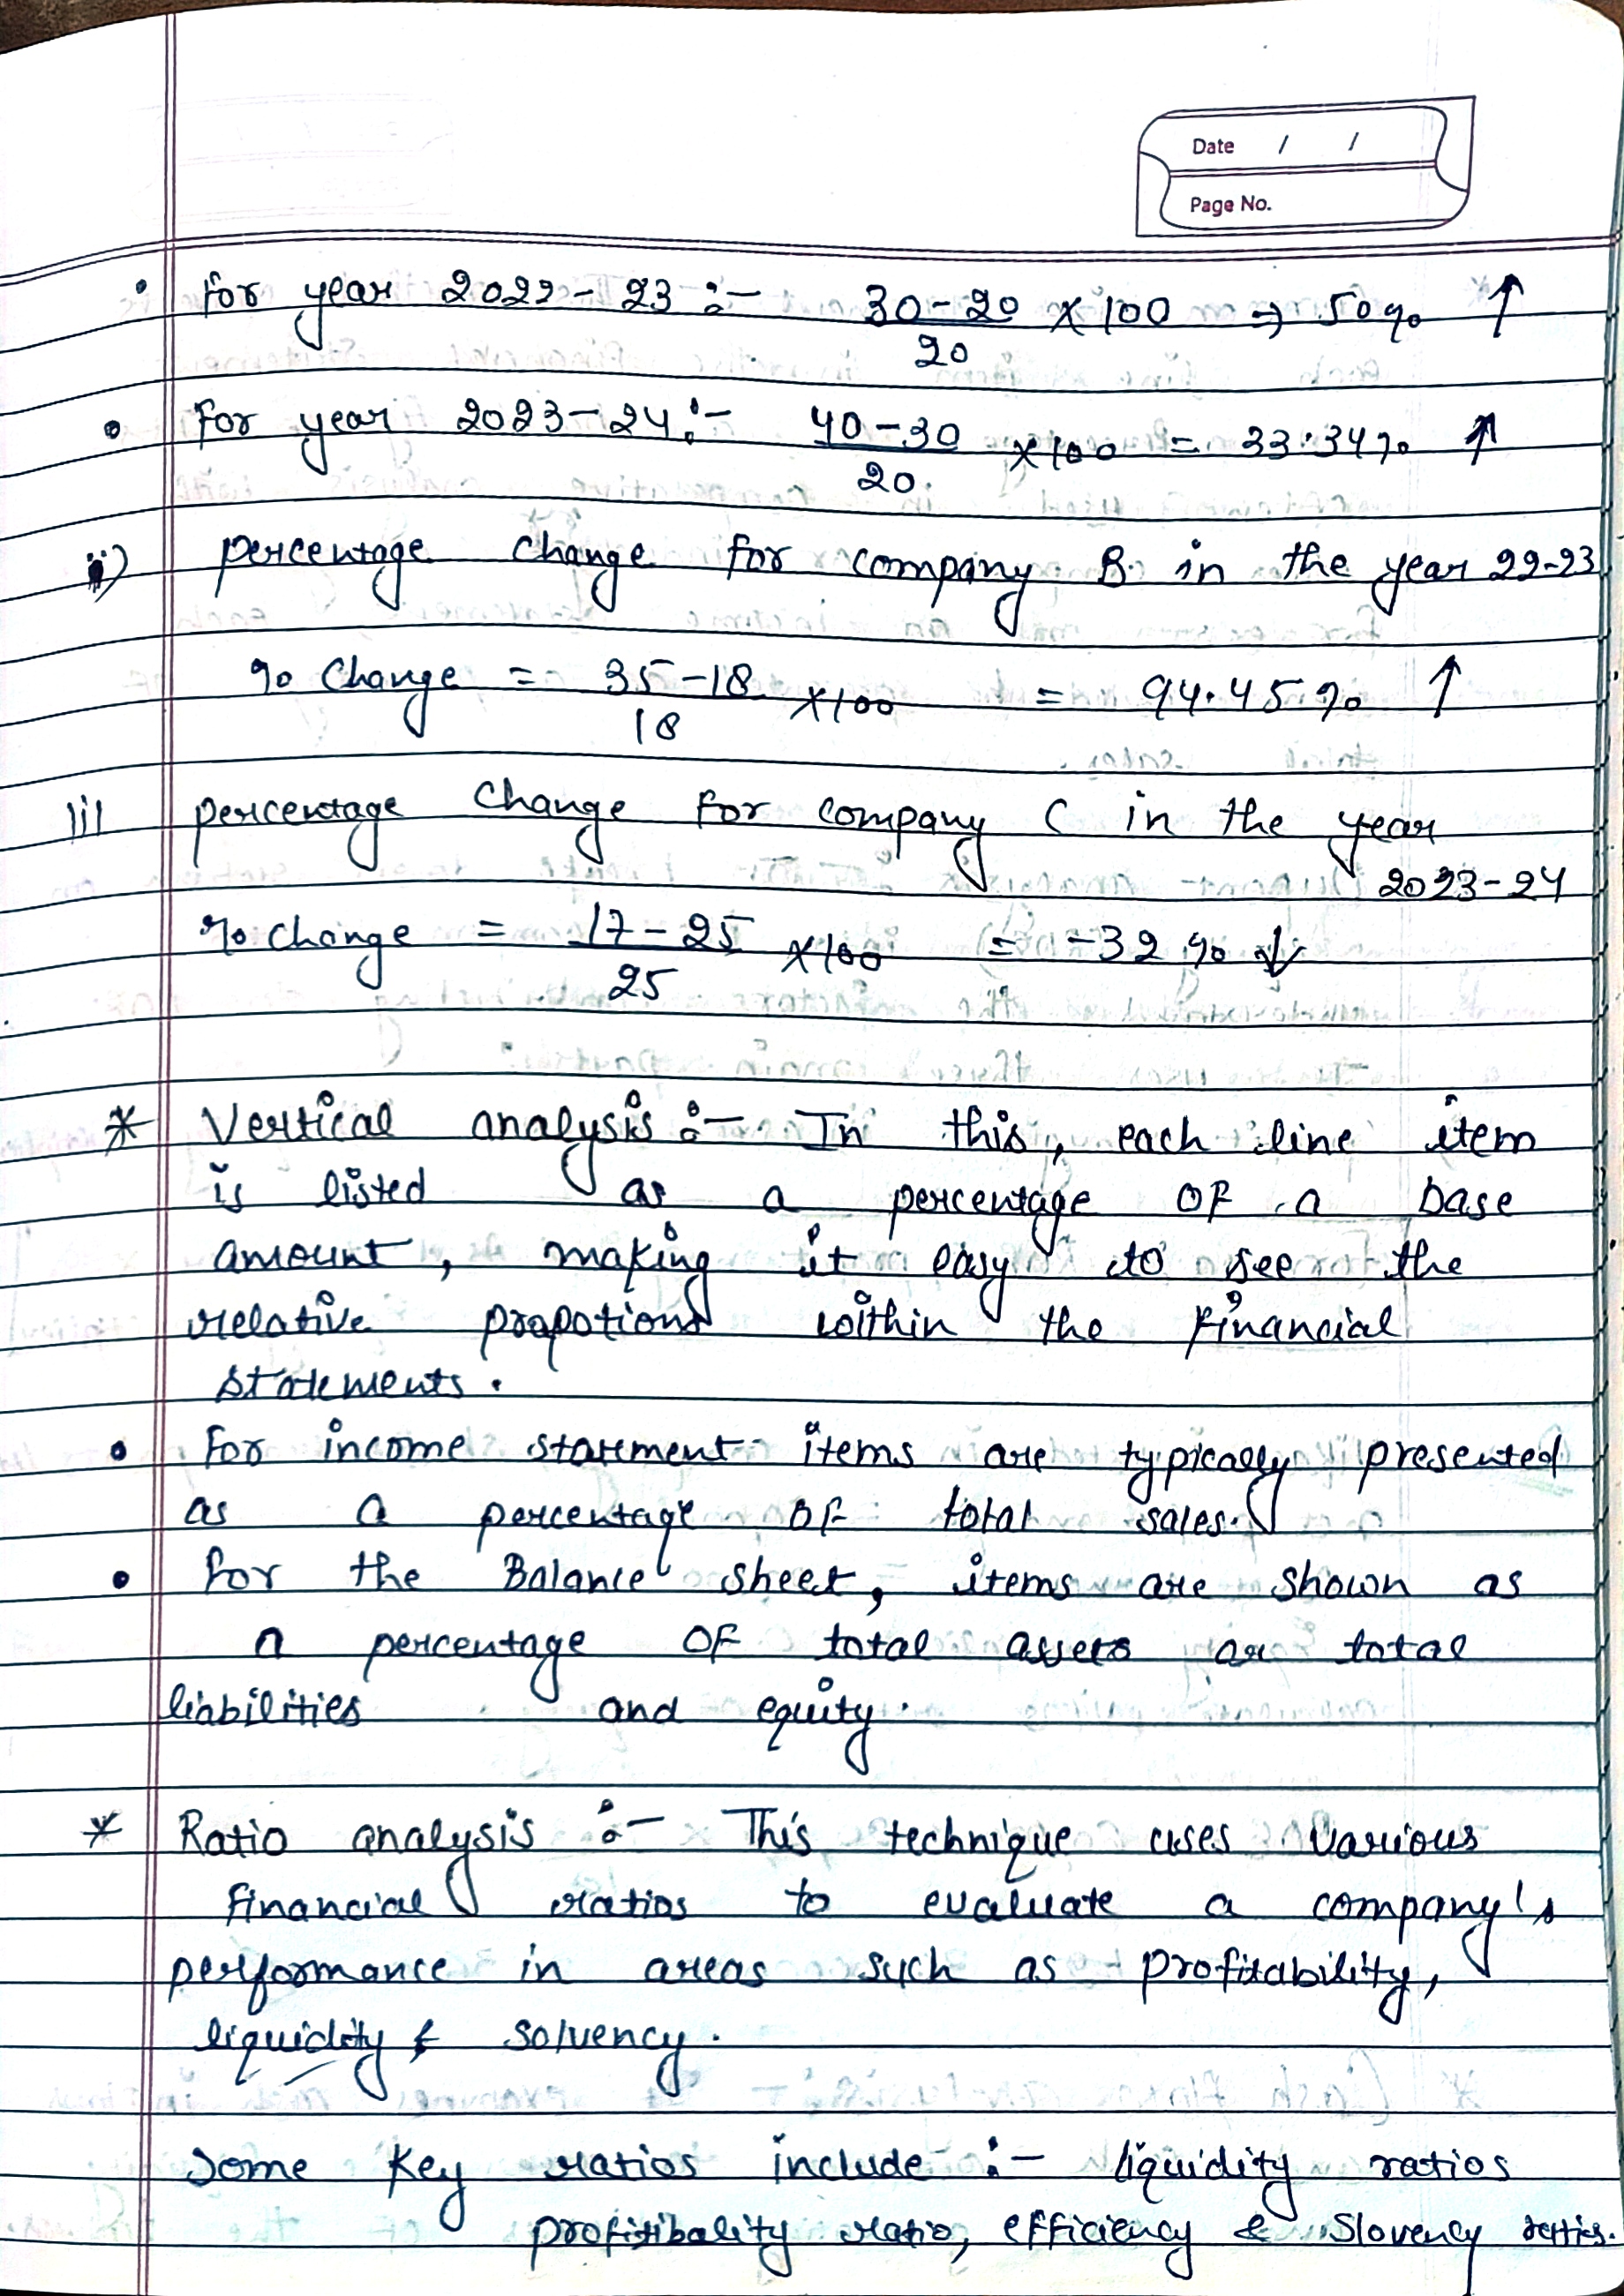 Date / /
Page No.
• For year 2022-23 :- 30-20/20 × 100 ⇒ 50% ↑
• For year 2023-24 :- 40-30/20 ×100 = 33.34% ↑
ii) percentage change for company B in the year 22-23
% Change = 35-18/18 ×100 = 94.45% ↑
iii percentage change for company C in the year
2023-24
% change = 17-25/25 ×100 = -32% ↓
* Vertical analysis :- In this, each line item
is listed as a percentage OF a base
amount, making it easy to see the
relative propotions within the Financial
statements.
• For income statement items are typically presented
as a percentage OF total sales.
• for the Balance sheet, items are shown as
a percentage OF total assets or total
liabilities and equity.
* Ratio analysis :- This technique uses various
financial ratios to evaluate a company's
performance in areas such as profitability,
liquidity & solvency.
Some Key ratios include :- liquidity ratios
profitibality ratio, efficiency & Slovency ratios.